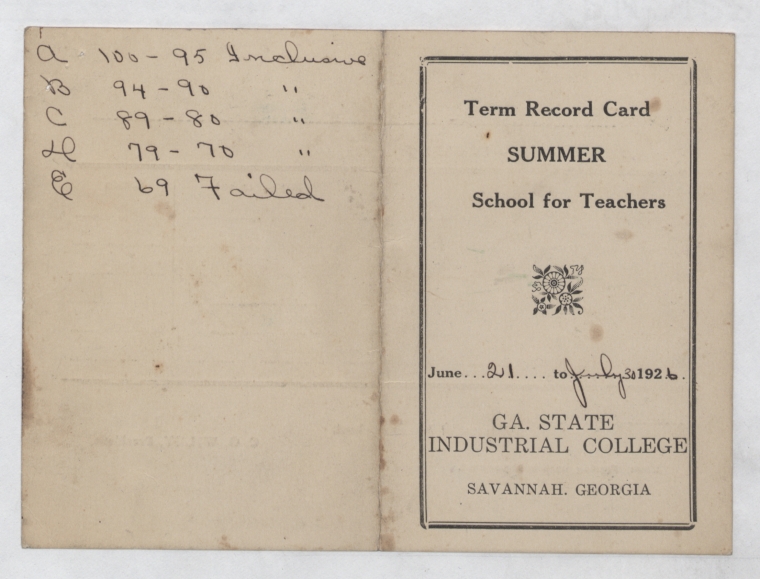 A 100 - 95 Inclusive
B 94 - 90 "
C 89 - 80 "
D 79 - 70 "
E 69 Failed
Term Record Card
SUMMER
School for Teachers
June...21.... to July 30 1926.
GA. STATE
INDUSTRIAL COLLEGE
SAVANNAH. GEORGIA